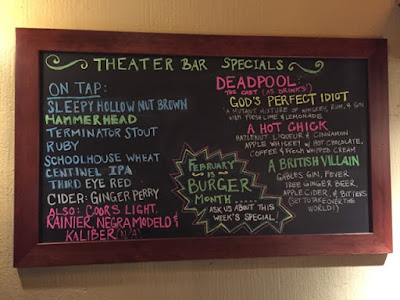 THEATER BAR SPECIALS
ON TAP:
SLEEPY HOLLOW NUT BROWN
HAMMERHEAD
TERMINATOR STOUT
RUBY
SCHOOLHOUSE WHEAT
CENTINEL IPA
THIRD EYE RED
CIDER: GINGER PERRY
ALSO: COORS LIGHT,
RAINIER, NEGRA MODELO &
KALIBER (N/A)
FEBRUARY
IS
BURGER
MONTH.....
ASK US ABOUT THIS
WEEK'S SPECIAL!
DEADPOOL:
THE CAST (AS DRINKS!)
GOD'S PERFECT IDIOT
A MUTANT MIXTURE OF WHISKEY, RUM, & GIN
WITH FRESH LIME & LEMONADE
A HOT CHICK
HAZELNUT LIQUEUR & CINNAMON
APPLE WHISKEY W/ HOT CHOCOLATE,
COFFEE & FRESH WHIPPED CREAM
A BRITISH VILLAIN
GABLES GIN, FEVER
TREE GINGER BEER,
APPLE CIDER, & BITTERS
(SET TO TAKE OVER THE
WORLD!)